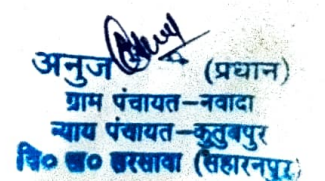 अनुज (प्रधान)
ग्राम पंचायत–नवादा
न्याय पंचायत–कुतुबपुर
वि० ख० सरसावा (सहारनपुर)